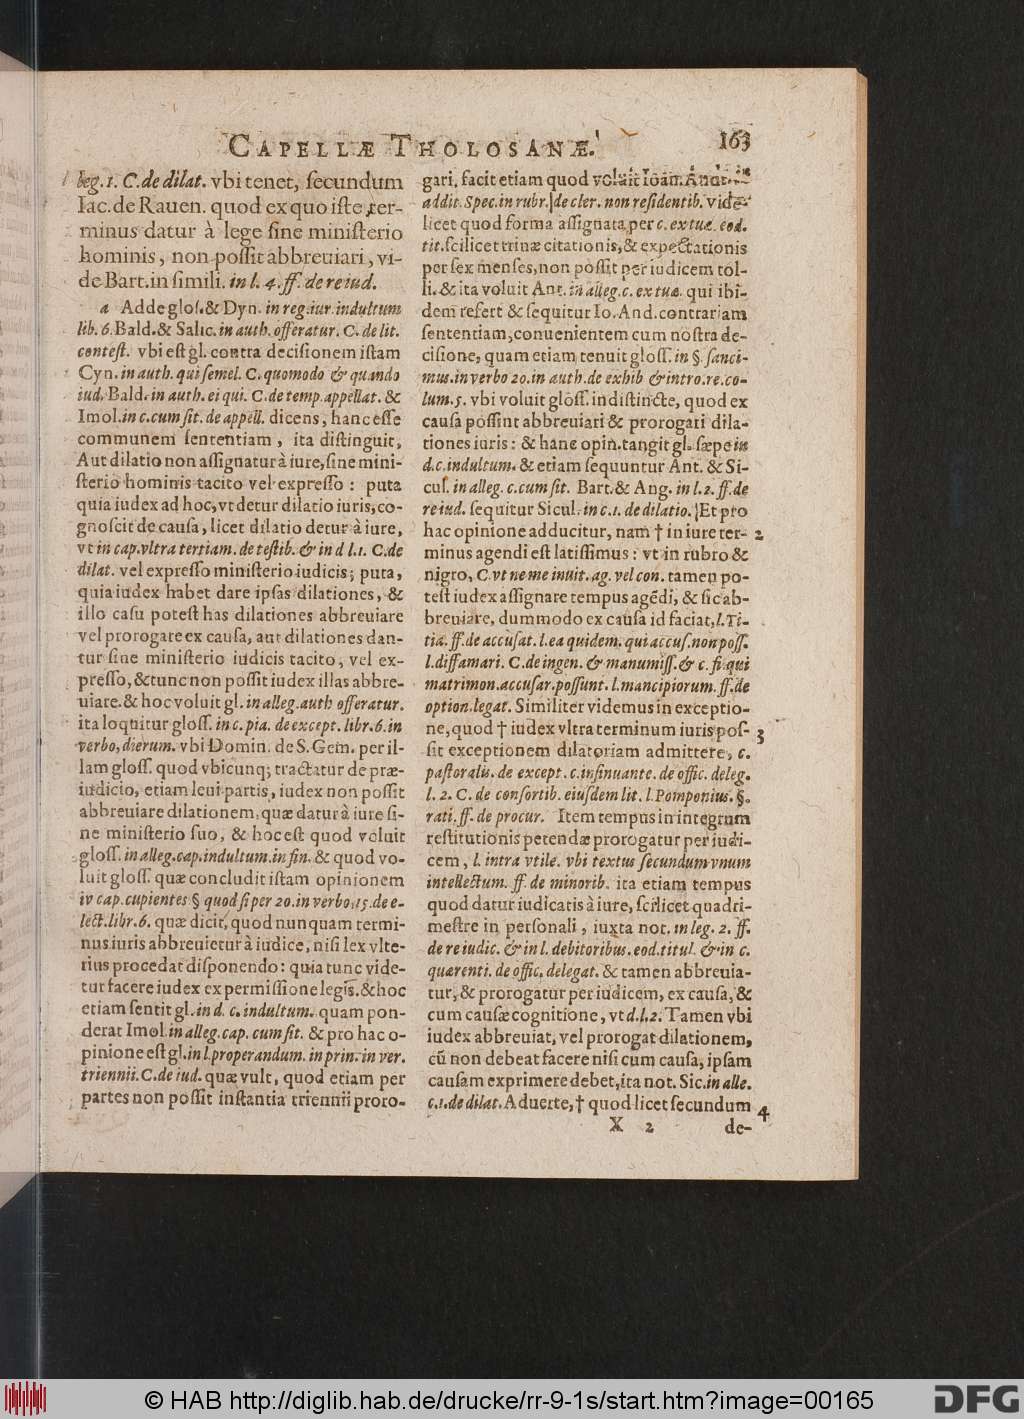 CAPELLÆ THOLOSANÆ. 163
leg. 1. C. de dilat. vbi tenet, ſecundum
Iac. de Rauen. quod ex quo iſte ter-
minus datur à lege ſine miniſterio
hominis, non poſſit abbreuiari, vi-
de Bart. in ſimili. in l. 4. ff. de re iud.
a Adde gloſ. & Dyn. in reg. iur. indultum
lib. 6. Bald. & Salic. in auth. offeratur. C. de lit.
conteſt. vbi eſt gl. contra deciſionem iſtam
Cyn. in auth. qui ſemel. C. quomodo & quando
iud. Bald. in auth. ei qui. C. de temp. appellat. &
Imol. in c. cum ſit. de appell. dicens, hanc eſſe
communem ſententiam, ita diſtinguit,
Aut dilatio non aſſignatur à iure, ſine mini-
ſterio hominis tacito vel expreſſo: puta
quia iudex ad hoc, vt detur dilatio iuris, co-
gnoſcit de cauſa, licet dilatio detur à iure,
vt in cap. vltra tertiam. de teſtib. & in d l. 1. C. de
dilat. vel expreſſo miniſterio iudicis; puta,
quia iudex habet dare ipſas dilationes, &
illo caſu poteſt has dilationes abbreuiare
vel prorogare ex cauſa, aut dilationes dan-
tur ſine miniſterio iudicis tacito, vel ex-
preſſo, & tunc non poſſit iudex illas abbre-
uiare. & hoc voluit gl. in alleg. auth offeratur.
ita loquitur gloſſ. in c. pia. de except. libr. 6. in
verbo, dierum. vbi Domin. de S. Gem. per il-
lam gloſſ. quod vbicunq; tractatur de præ-
iudicio, etiam leui partis, iudex non poſſit
abbreuiare dilationem, quæ datur à iure ſi-
ne miniſterio ſuo, & hoc eſt quod voluit
gloſſ. in alleg. cap. indultum. in fin. & quod vo-
luit gloſſ. quæ concludit iſtam opinionem
iv cap. cupientes § quod ſi per 20. in verbo, 15. de e-
lect. libr. 6. quæ dicit, quod nunquam termi-
nus iuris abbreuietur à iudice, niſi lex vlte-
rius procedat diſponendo: quia tunc vide-
tur facere iudex ex permiſſione legis. & hoc
etiam ſentit gl. in d. c. indultum. quam pon-
derat Imol. in alleg. cap. cum ſit. & pro hac o-
pinione eſt gl. in l. properandum. in prin. in ver.
triennii. C. de iud. quæ vult, quod etiam per
partes non poſſit inſtantia triennii proro-
gari, facit etiam quod voluit Ioan. And.
addit. Spec. in rubr. de cler. non reſidentib. vide-
licet quod forma aſſignata per c. ex tuæ. eod.
tit. ſcilicet trinæ citationis, & expectationis
per ſex menſes, non poſſit per iudicem tol-
li. & ita voluit Ant. in alleg. c. ex tuæ. qui ibi-
dem refert & ſequitur Io. And. contrariam
ſententiam, conuenientem cum noſtra de-
ciſione, quam etiam tenuit gloſſ. in §. ſanci-
mus. in verbo 20. in auth. de exhib & intro. re. co-
lum. 5. vbi voluit gloſſ. indiſtincte, quod ex
cauſa poſſint abbreuiari & prorogari dila-
tiones iuris: & hanc opin. tangit gl. ſæpe in
d. c. indultum. & etiam ſequuntur Ant. & Si-
cul. in alleg. c. cum ſit. Bart. & Ang. in l. 2. ff. de
re iud. ſequitur Sicul. in c. 1. de dilatio. Et pro
hac opinione adducitur, nam † in iure ter- 2
minus agendi eſt latiſſimus: vt in rubro &
nigro, C. vt ne me inuit. ag. vel con. tamen po-
teſt iudex aſſignare tempus agēdi, & ſic ab-
breuiare, dummodo ex cauſa id faciat, l. Ti-
tia. ff. de accuſat. l. ea quidem. qui accuſ. non poſſ.
l. diffamari. C. de ingen. & manumiſſ. & c. ſi qui
matrimon. accuſar. poſſunt. l. mancipiorum. ff. de
option. legat. Similiter videmus in exceptio-
ne, quod † iudex vltra terminum iuris poſ- 3
ſit exceptionem dilatoriam admittere, c.
paſtoralis. de except. c. inſinuante. de offic. deleg.
l. 2. C. de conſortib. eiuſdem lit. l. Pomponius. §.
rati. ff. de procur. Item tempus in integrum
reſtitutionis petendæ prorogatur per iudi-
cem, l. intra vtile. vbi textus ſecundum vnum
intellectum. ff. de minorib. ita etiam tempus
quod datur iudicatis à iure, ſcilicet quadri-
meſtre in perſonali, iuxta not. in leg. 2. ff.
de re iudic. & in l. debitoribus. eod. titul. & in c.
quærenti. de offic. delegat. & tamen abbreuia-
tur, & prorogatur per iudicem, ex cauſa, &
cum cauſæ cognitione, vt d. l. 2. Tamen vbi
iudex abbreuiat, vel prorogat dilationem,
cū non debeat facere niſi cum cauſa, ipſam
cauſam exprimere debet, ita not. Sic. in alle.
c. 1. de dilat. Aduerte, † quod licet ſecundum 4
X 2 de-
© HAB http://diglib.hab.de/drucke/rr-9-1s/start.htm?image=00165
DFG